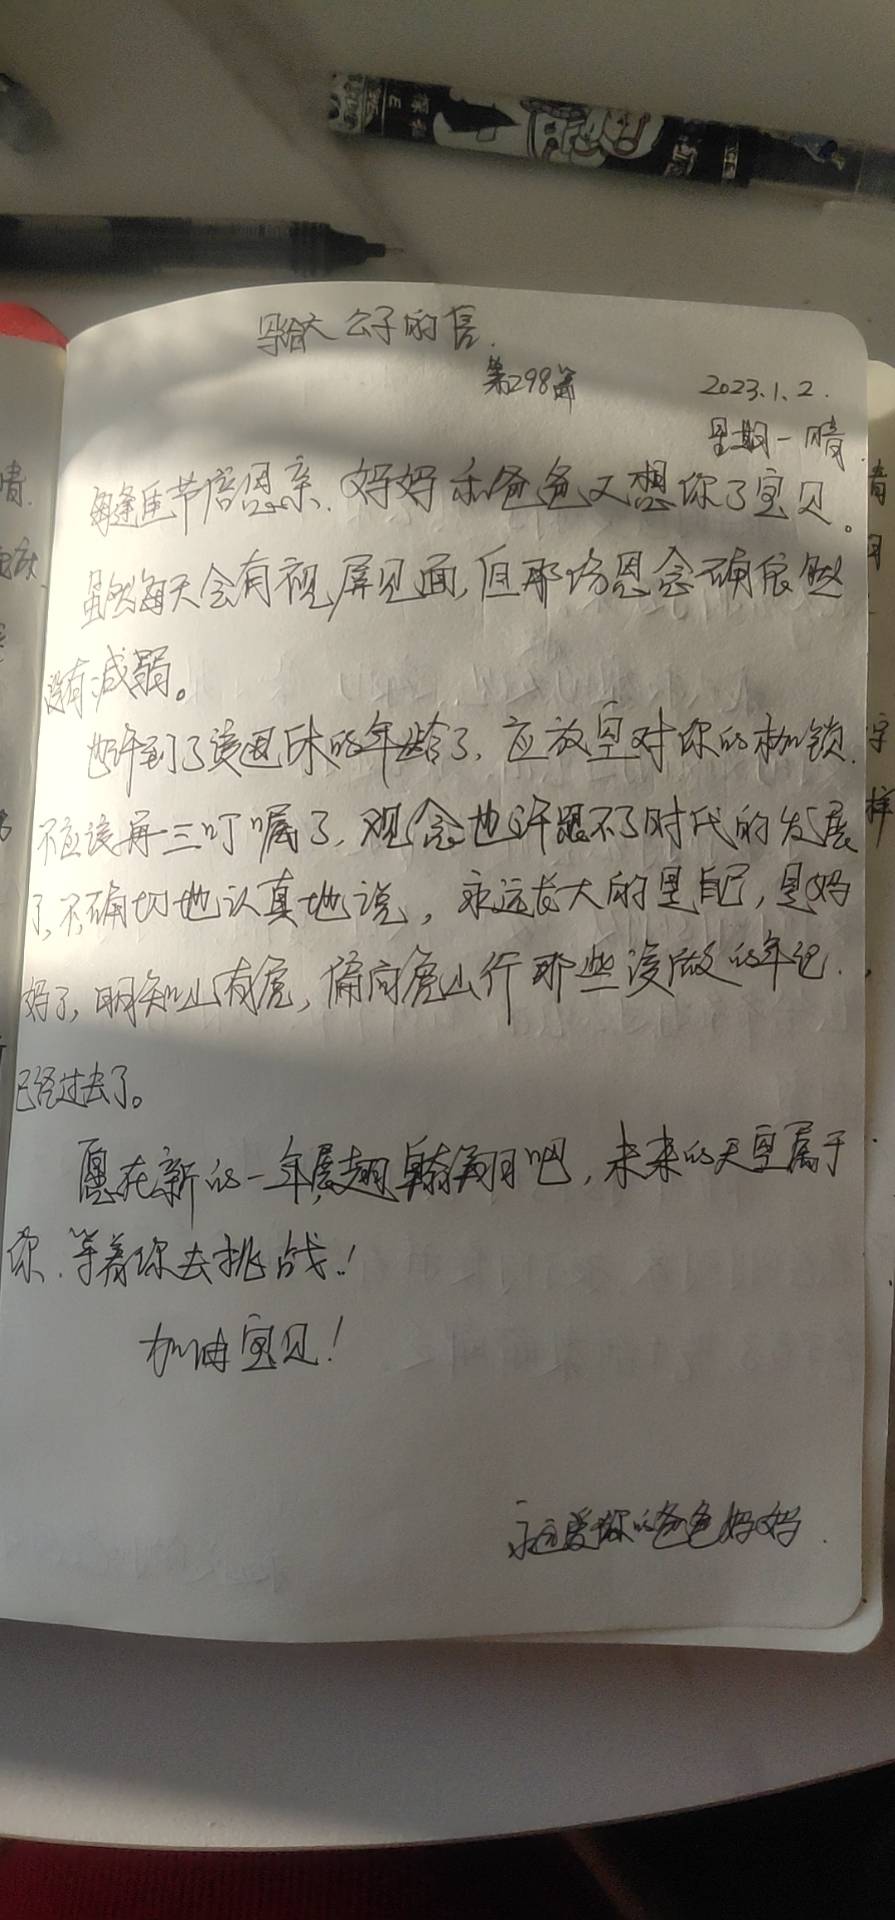 写给大公子的信.
第298篇
2023.1.2.
星期一 晴.
每逢佳节倍思亲.妈妈和爸爸又想你了宝贝。
虽然每天会有视屏见面,但那份思念确依然
没有减弱。
也许到了该退休的年龄了,应放空对你的枷锁.
不应该再三叮嘱了,观念也许跟不了时代的发展
了,不,确切地认真地说,永远长大的是自己,是妈
妈了,明知山有虎,偏向虎山行那些没做的年纪.
已经过去了。
愿在新的一年展翅翱翔吧,未来的天空属于
你.等着你去挑战!
加油宝贝!
永远爱你的爸爸妈妈.